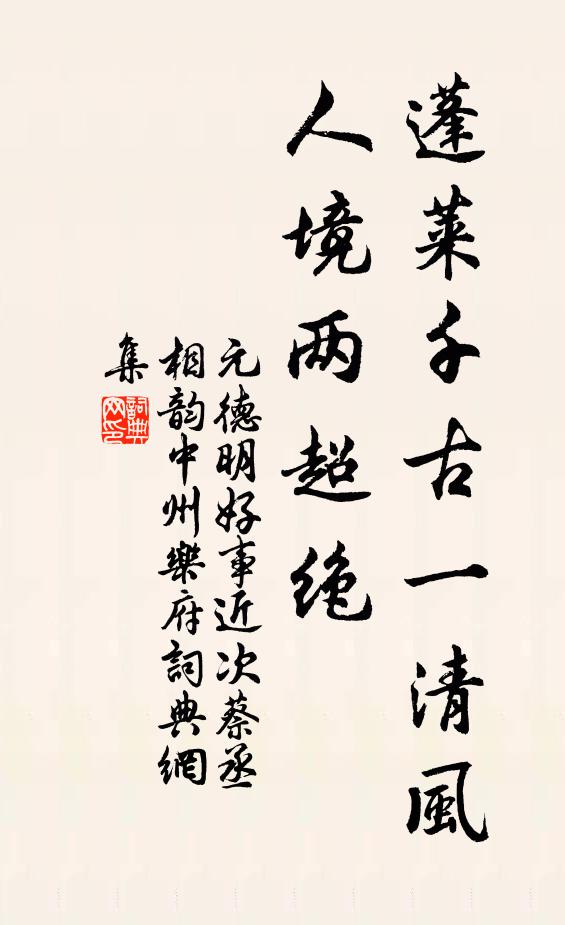 蓬莱千古一清風
人境两超绝
元德明好事近次蔡丞
相韵中州樂府詞典網
集
詞典
网印